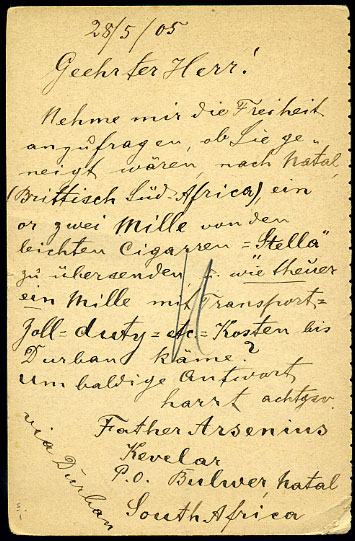 28/5/05
Geehrter Herr!
Nehme mir die Freiheit
anzufragen, ob Sie ge„
neigt wären, nach Natal
(Brittisch Süd-Africa), ein
or zwei Mille von den
leichten Cigarren =Stella“
zu übersenden, wie theuer
ein Mille mit Transport=
Zoll=duty=etc=Kosten bis
Durban käme?
Um baldige Antwort
harrt achtgsv.
Father Arsenius
Kevelar
P.O. Bulwer, Natal
South Africa
via Durban